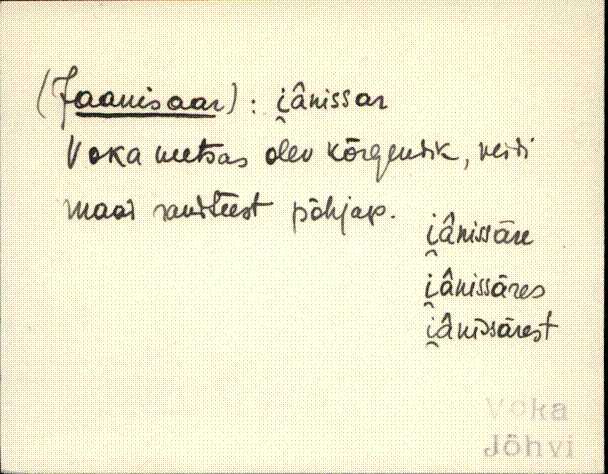 (Jaanisaar) : i̯ânissar
Voka metsas olev kõrgendik, veidi
maad raudteest põhjap.
i̯ânissāre
i̯ânissāres
i̯ânissārest
Voka
Jõhvi